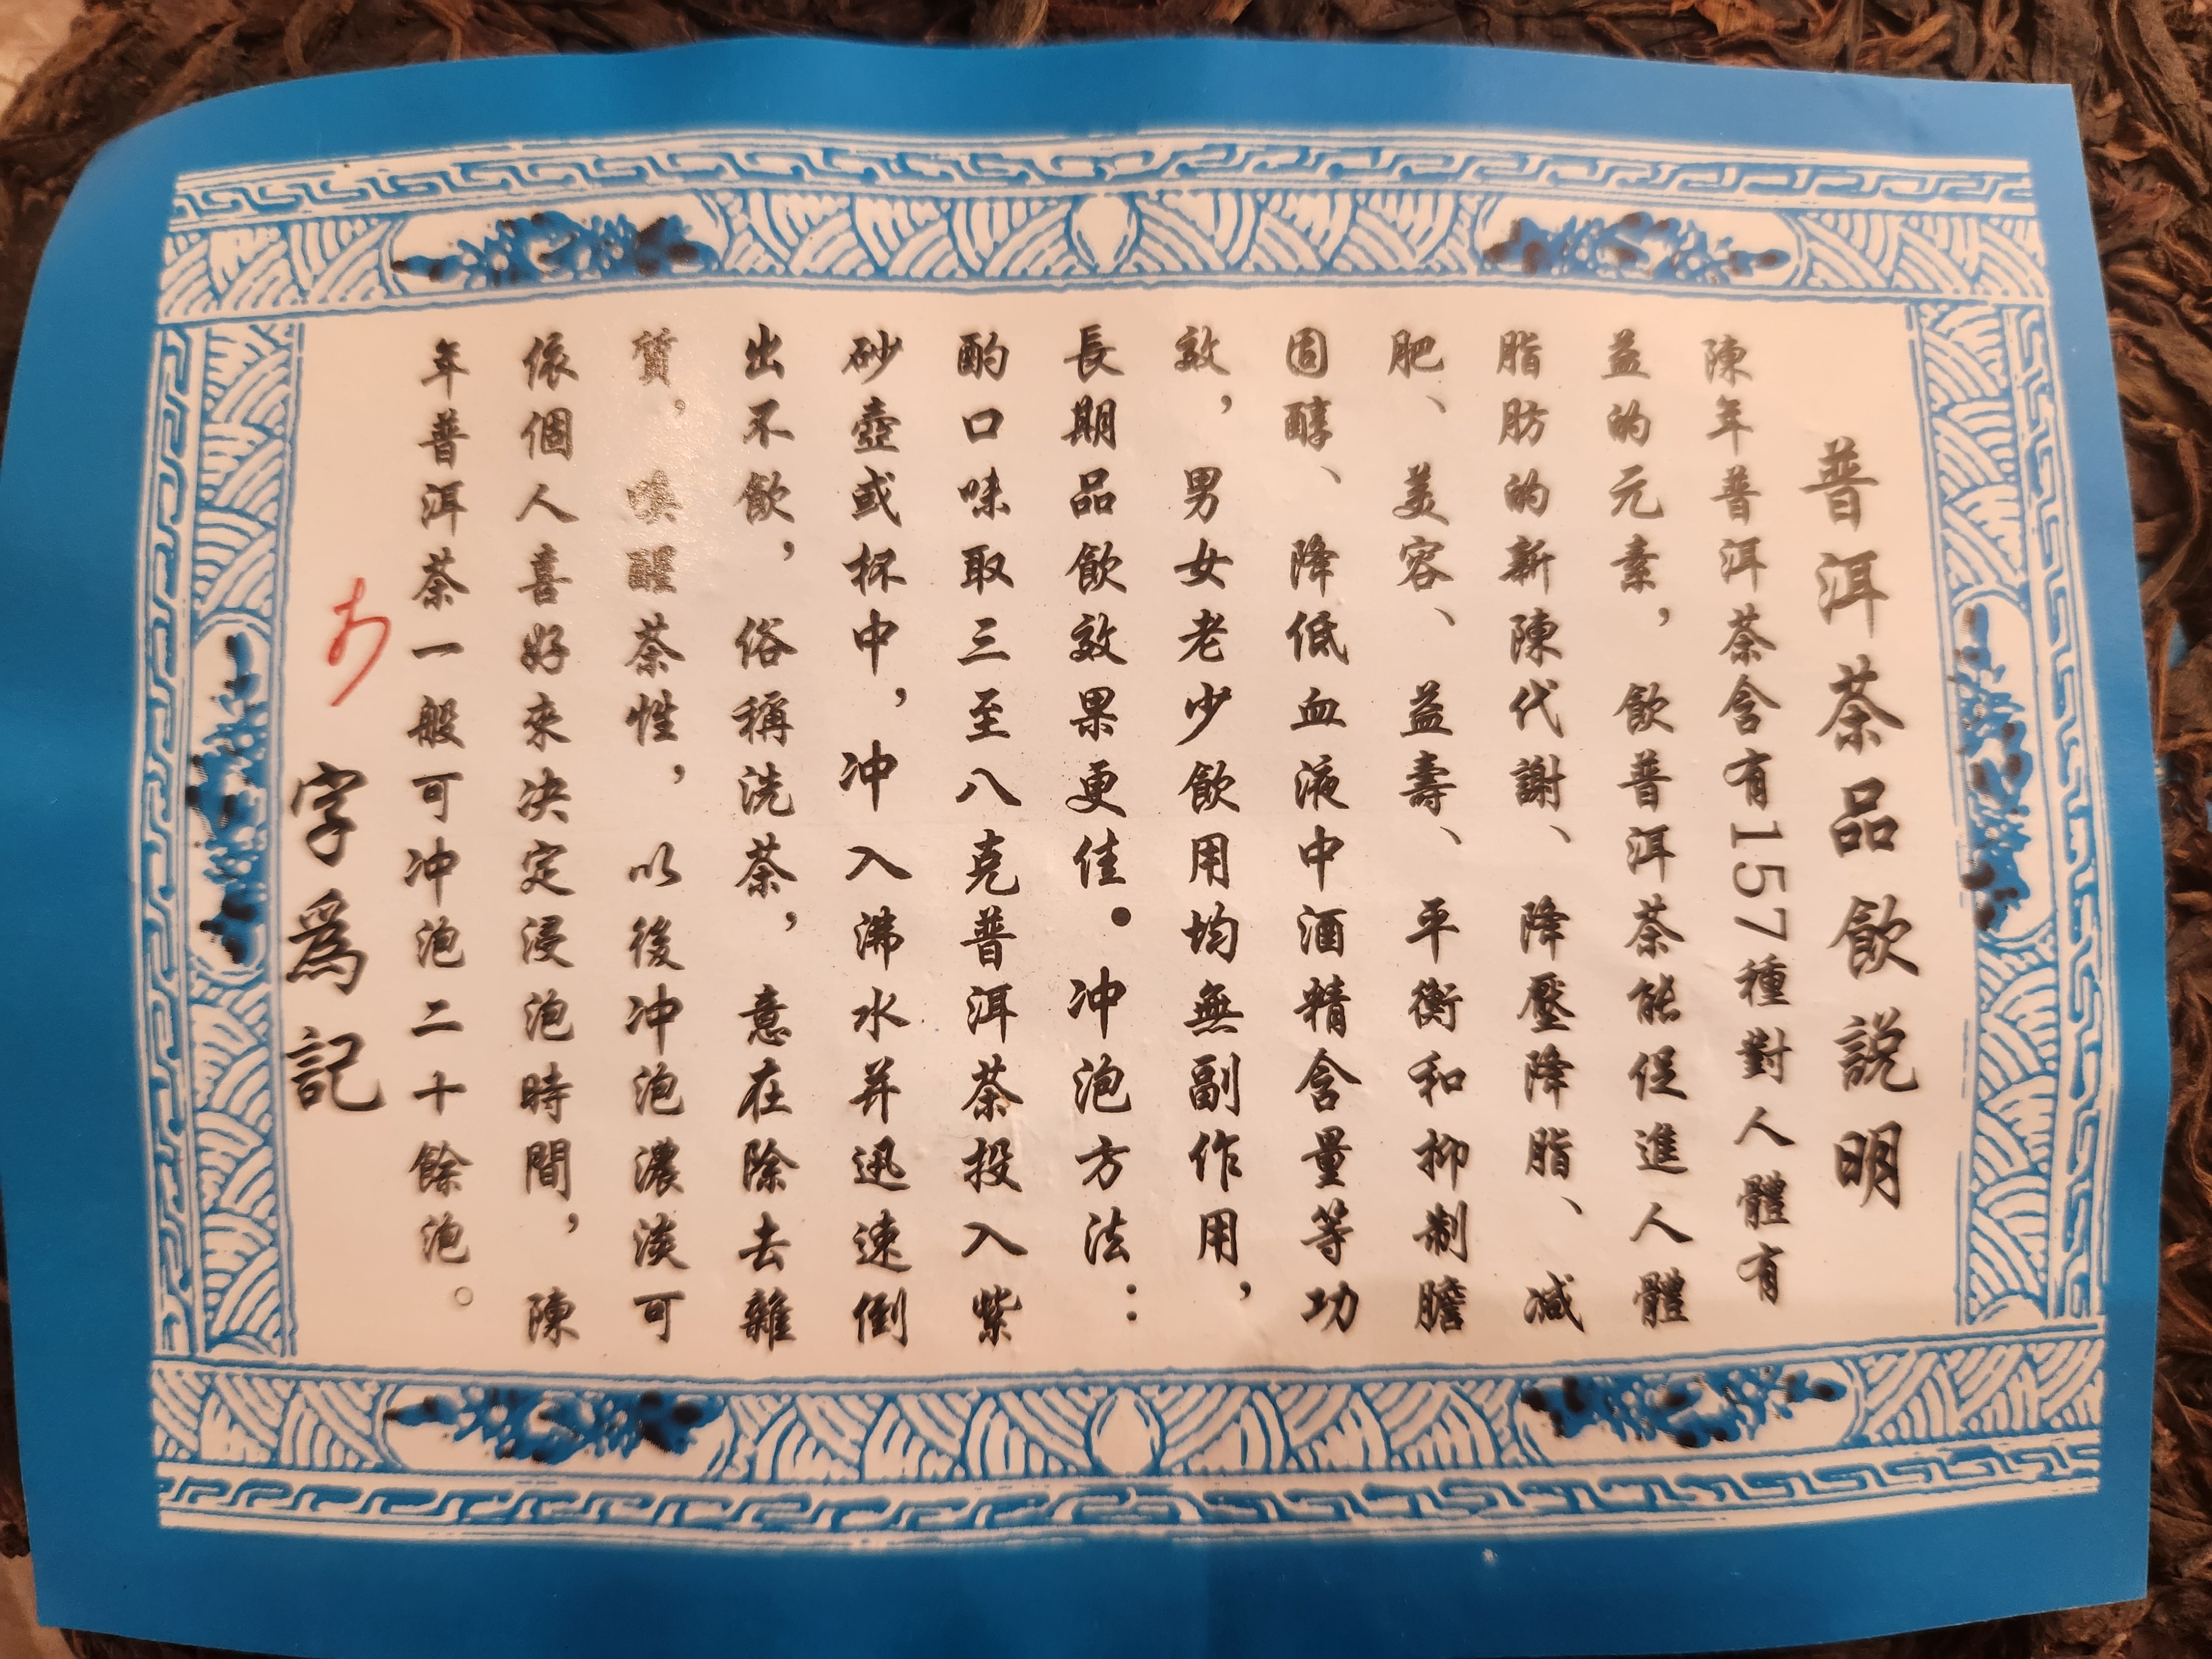 普洱茶品飲説明
陳年普洱茶含有157種對人體有
益的元素，飲普洱茶能促進人體
脂肪的新陳代謝、降壓降脂、減
肥、美容、益壽、平衡和抑制膽
固醇、降低血液中酒精含量等功
效，男女老少飲用均無副作用，
長期品飲效果更佳。冲泡方法：
酌口味取三至八克普洱茶投入紫
砂壺或杯中，冲入沸水并迅速倒
出不飲，俗稱洗茶，意在除去雜
質，喚醒茶性，以後冲泡濃淡可
依個人喜好來决定浸泡時間，陳
年普洱茶一般可冲泡二十餘泡。
字爲記